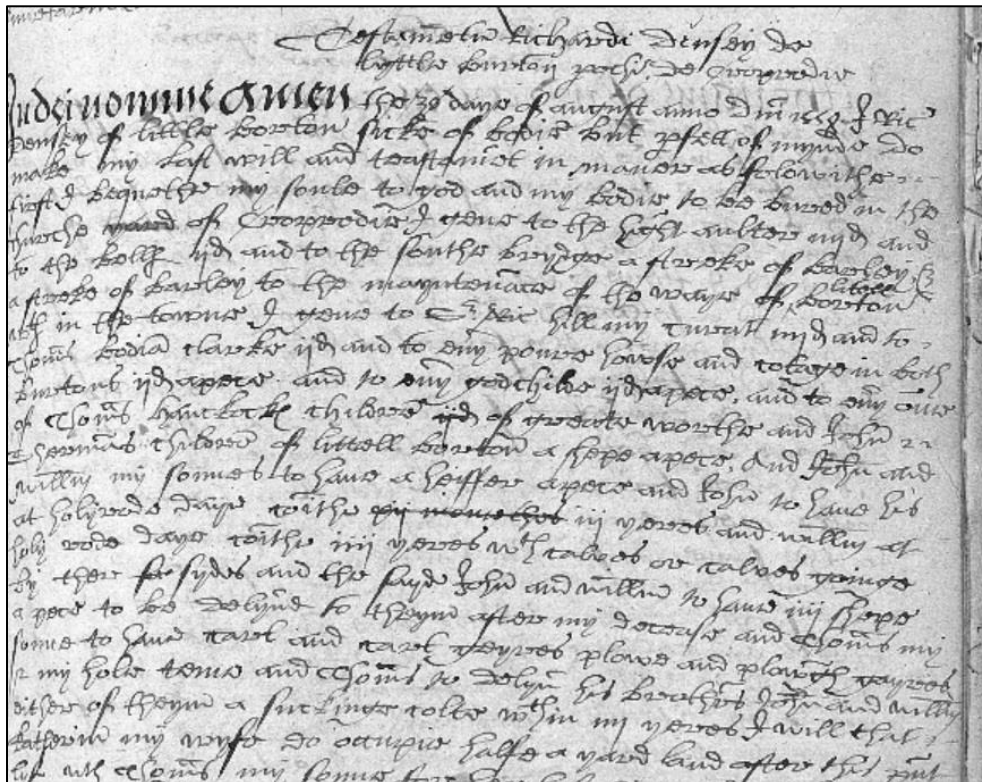 Testametu Richardi Densey de
lyttle burton pochi de Cropredie
In dei nomine Amen the 30 daye of august anno Dmi I Ric
Densey of little boreton sicke of bodie but pfett of mynde do
make my last will and teastamet in maner as folowithe
first I bequethe my soule to god and my bodie to be bured in the
churche yeard of Croppredie I geve to the hight aulter iiijd and
to the bells ijd and to the southe brydge a streeke of barley
a streke of barley to the mayntenace of the waye of litell boreton
in the towne I geve to Sr Ric hill my curat iiijd and to
Thoms bodia clarke ijd and to evy poure howse and cotage in both
burtons ijd apece and to evy godchilde ijd apece, and to evy one
of Thoms hanckocks childre ijd of greate worthe and John
Shermas childern of littell boreton a shepe apece, And John and
willm my sonnes to have a heiffer apece and John to have his
at holyrode daye cometh xij monethes iij yeres and willm at
holy rode daye cometh iiij yeres wth calves or calves goinge
by there sydes and the sayde John and willm to have iiij shepe
apece to be delyvd to theym after my decease and Thoms my
sonne to have cart and cart geyres plowe and plowgh gayres
my hole teme and Thoms to delyv his brothers John and willm
either of theym a suckinge colte wthin iiij yeres I will that
katherin my wyfe do occupie halfe a yard land after that
wth Thoms my sonne